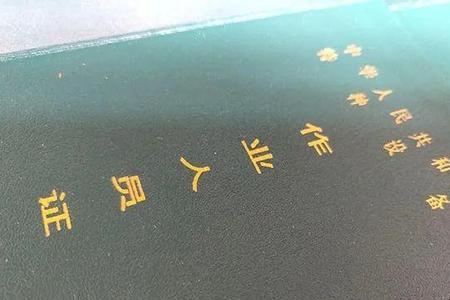 中华人民共和
特种设备
作业人员证